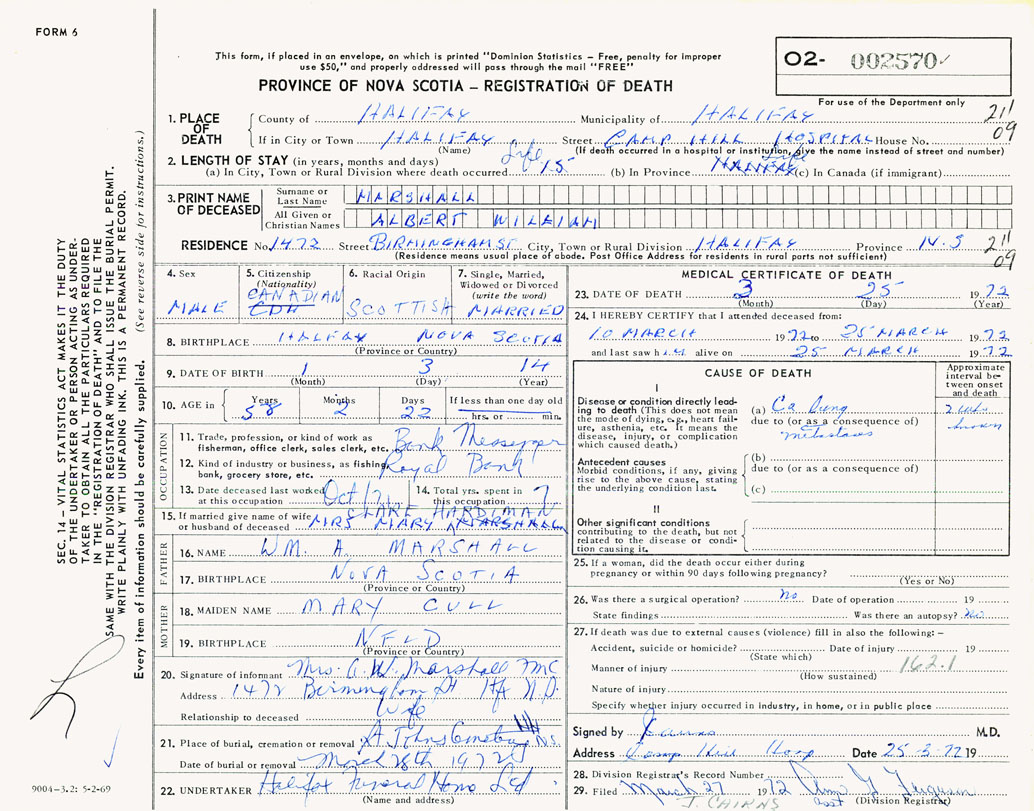 FORM 6
This form, if placed in an envelope, on which is printed "Dominion Statistics – Free, penalty for improper
use $50," and properly addressed will pass through the mail "FREE"
PROVINCE OF NOVA SCOTIA – REGISTRATION OF DEATH
O2- 002570
For use of the Department only
1. PLACE OF DEATH
County of HALIFAX Municipality of HALIFAX 211
If in City or Town HALIFAX Street CAMP HILL HOSPITAL House No. 09
(Name) (If death occurred in a hospital or institution, give the name instead of street and number)
2. LENGTH OF STAY (in years, months and days)
(a) In City, Town or Rural Division where death occurred Life (b) In Province Life (c) In Canada (if immigrant)
3. PRINT NAME OF DECEASED
Surname or Last Name MARSHALL
All Given or Christian Names ALBERT WILLIAM
RESIDENCE No. 1472 Street BIRMINGHAM ST City, Town or Rural Division HALIFAX Province N.S 211
(Residence means usual place of abode. Post Office Address for residents in rural parts not sufficient) 09
4. Sex
MALE
5. Citizenship (Nationality)
CANADIAN
CDN
6. Racial Origin
SCOTTISH
7. Single, Married, Widowed or Divorced (write the word)
MARRIED
8. BIRTHPLACE HALIFAX NOVA SCOTIA
(Province or Country)
9. DATE OF BIRTH 1 3 14
(Month) (Day) (Year)
10. AGE in Years 58 Months 2 Days 22 If less than one day old hrs. or min.
OCCUPATION
11. Trade, profession, or kind of work as fisherman, office clerk, sales clerk, etc. Bank Messenger
12. Kind of industry or business, as fishing, bank, grocery store, etc. Royal Bank
13. Date deceased last worked at this occupation Oct/71 14. Total yrs. spent in this occupation 7
15. If married give name of wife or husband of deceased MRS MARY CLARE HARDIMAN MARSHALL
FATHER
16. NAME WM. A. MARSHALL
17. BIRTHPLACE NOVA SCOTIA
(Province or Country)
MOTHER
18. MAIDEN NAME MARY CULL
19. BIRTHPLACE NFLD
(Province or Country)
20. Signature of informant Mrs. A. W. Marshall
Address 1472 Birmingham St Hfx N.S.
Relationship to deceased Wife
21. Place of burial, cremation or removal St. Johns Cemetery N.S.
Date of burial or removal March 28th 1972
22. UNDERTAKER Halifax Funeral Home Ltd
(Name and address)
MEDICAL CERTIFICATE OF DEATH
23. DATE OF DEATH 3 25 1972
(Month) (Day) (Year)
24. I HEREBY CERTIFY that I attended deceased from:
10 MARCH 1972 to 25 MARCH 1972
and last saw him alive on 25 MARCH 1972
CAUSE OF DEATH
Approximate interval between onset and death
I
Disease or condition directly leading to death (This does not mean the mode of dying, e.g., heart failure, asthenia, etc. It means the disease, injury, or complication which caused death.)
(a) Ca Lung
due to (or as a consequence of)
metastases
Antecedent causes
Morbid conditions, if any, giving rise to the above cause, stating the underlying condition last.
(b)
due to (or as a consequence of)
(c)
II
Other significant conditions contributing to the death, but not related to the disease or condition causing it.
25. If a woman, did the death occur either during pregnancy or within 90 days following pregnancy?
(Yes or No)
26. Was there a surgical operation? No Date of operation 19
State findings Was there an autopsy?
27. If death was due to external causes (violence) fill in also the following: –
Accident, suicide or homicide? Date of injury 19
(State which)
Manner of injury 162.1
(How sustained)
Nature of injury
Specify whether injury occurred in industry, in home, or in public place
Signed by J Cairns M.D.
Address Camp Hill Hosp Date 25-3-72 19
28. Division Registrar's Record Number
29. Filed March 27 1972 Wm G Ferguson
J. CAIRNS asst (Division Registrar)
SEC. 14 – VITAL STATISTICS ACT MAKES IT THE DUTY
OF THE UNDERTAKER OR PERSON ACTING AS UNDER-
TAKER TO OBTAIN ALL THE PARTICULARS REQUIRED
IN THE "REGISTRATION OF DEATH" AND TO FILE THE
SAME WITH THE DIVISION REGISTRAR WHO SHALL ISSUE THE BURIAL PERMIT.
WRITE PLAINLY WITH UNFADING INK. THIS IS A PERMANENT RECORD.
Every item of information should be carefully supplied. (See reverse side for instructions.)
9004-3.2: 5-2-69